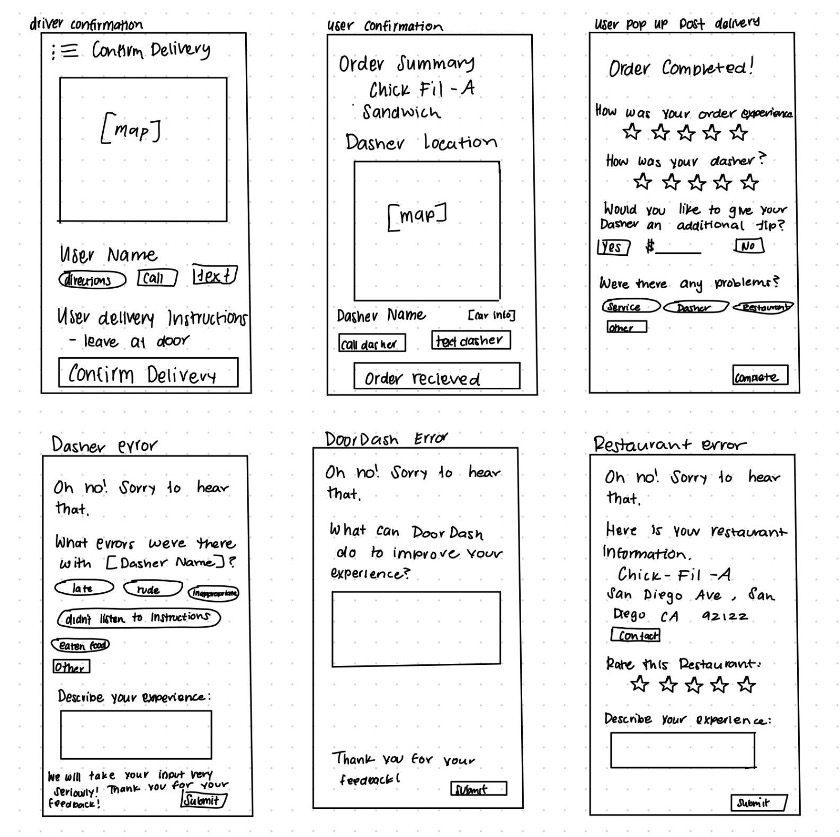 driver confirmation
Confirm Delivery
[map]
User Name
directions
call
text
User delivery Instructions
- leave at door
Confirm Delivery
user confirmation
Order Summary
Chick Fil-A
Sandwich
Dasher Location
[map]
Dasher Name
[car info]
call dasher
text dasher
Order recieved
user pop up post delivery
Order Completed!
How was your order experience
How was your dasher?
Would you like to give your
Dasher an additional tip?
Yes
$
No
Were there any problems?
Service
Dasher
Restaurant
other
complete
Dasher error
Oh no! Sorry to hear
that.
What errors were there
with [Dasher Name]?
late
rude
inappropriate
didnt listen to instructions
eaten food
Other
Describe your experience:
We will take your input very
seriously! Thank you for your
feedback!
Submit
DoorDash Error
Oh no! Sorry to hear
that.
What can DoorDash
do to improve your
experience?
Thank you for your
feedback!
Submit
Restaurant error
Oh no! Sorry to hear
that.
Here is your restaurant
information.
Chick-Fil-A
San Diego Ave, San
Diego CA 92122
Contact
Rate this Restaurant:
Describe your experience:
Submit